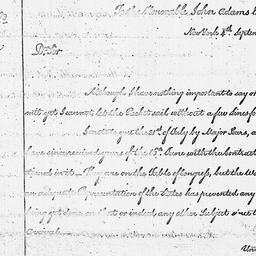 To the Honorable John Adams
New York 4th Septem
Dr Sir
Although I have nothing important to say or
not yet I cannot let the Packet sail without a few lines fo
I wrote to you the 31st of July by Major Sears, a
have since received yours of the 15th June with the contract
They are on the Table of Congress, but the
an adequate Representation of the States has prevented any
being yet done on that or indeed any other Subject since t
Arrival